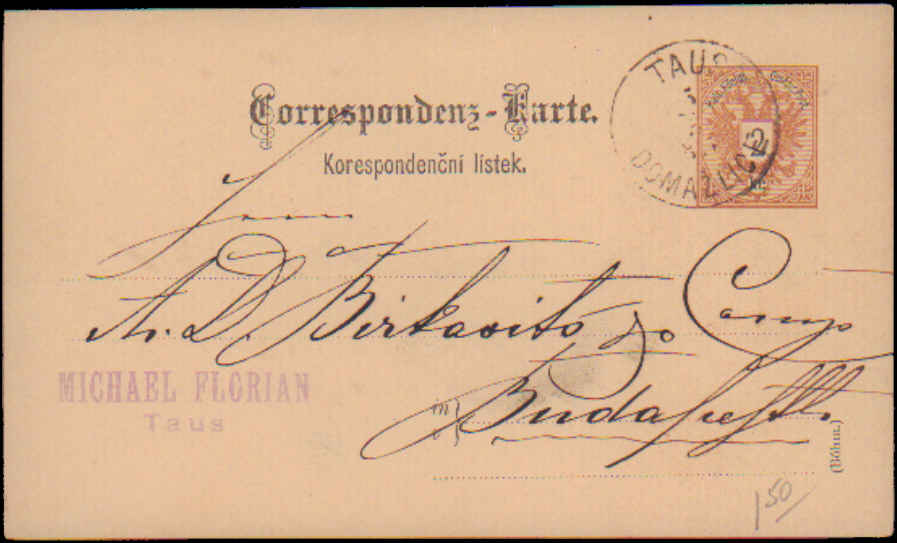 Correspondenz-Karte.
Korespondenční lístek.
TAUS
DOMAŽLICE
2
Herrn
A. D. Birkovitó & Comp
Budapest.
MICHAEL FLORIAN
Taus
in
v
(Böhm.)
150